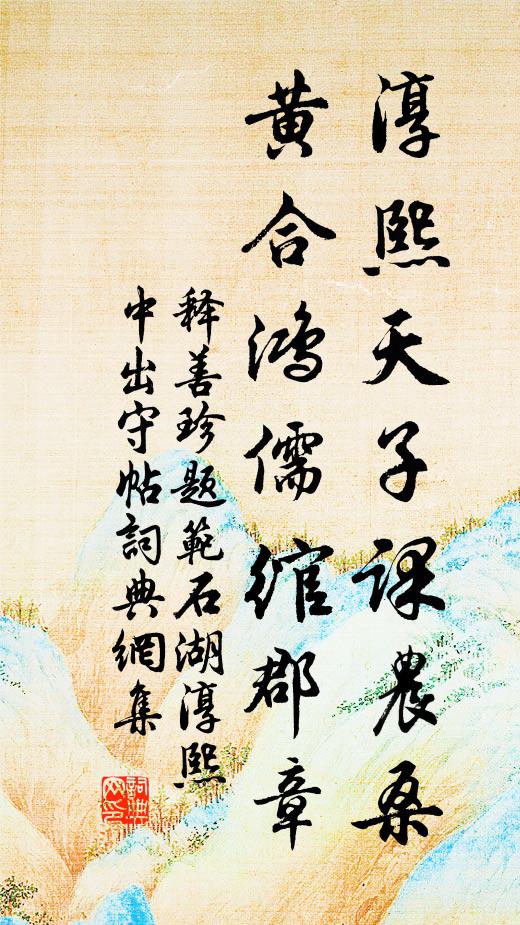 淳熙天子课農桑
黄合鴻儒綰郡章
释善珍题範石湖淳熙
中出守帖詞典網集